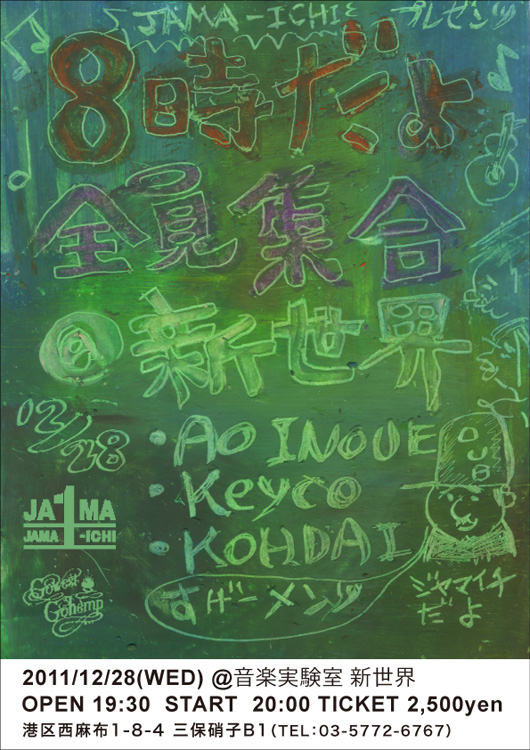 JAMA-ICHI プレゼンツ
8時だよ
全員集合
@新世界
12/28
・AO INOUE
・Keyco
・KOHDAI
すげーメンツ
DUB
ジャマイチ
だよ
JA1MA
JAMA -ICHI
Gowest
Gohemp
2011/12/28(WED) @音楽実験室 新世界
OPEN 19:30 START 20:00 TICKET 2,500yen
港区西麻布1-8-4 三保硝子B1(TEL:03-5772-6767)